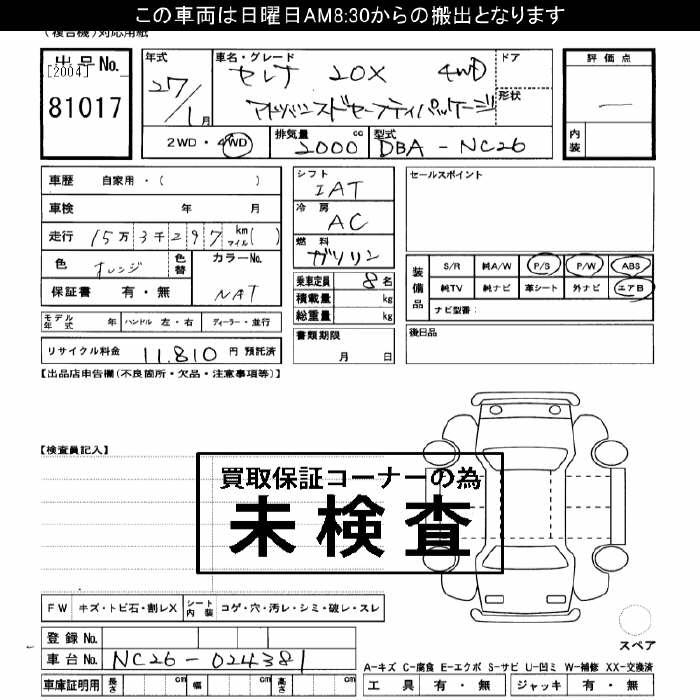 この車両は日曜日AM8:30からの搬出となります
(複合機)対応用紙
出品No. 年式 車名・グレード ドア 評価点
[2004] 27/1月 セレナ 20X 4WD 形状 —
81017 アドバンスドセーフティパッケージ
2WD・4WD 排気量 2000 cc 型式 DBA-NC26 内装
車歴 自家用・( ) シフト IAT セールスポイント
車検 年 月 冷房 AC
走行 15万3千297 km マイル( ) 燃料 ガソリン
色 オレンジ 色替 カラーNo. NAT 装備品 S/R 純A/W P/S P/W ABS
保証書 有・無 乗車定員 8名 純TV 純ナビ 革シート 外ナビ エアB
積載量 kg ナビ型番:
モデル年式 年 ハンドル 左・右 ディーラー・並行 総重量 kg
リサイクル料金 11,810 円 預託済 書類期限 月 日 後日品
【出品店申告欄(不良箇所・欠品・注意事項等)】
【検査員記入】
買取保証コーナーの為
未検査
FW キズ・トビ石・割レX シート内装 コゲ・穴・汚レ・シミ・破レ・スレ
登録No. スペア
車台No. NC26-024381
A-キズ C-腐食 E-エクボ S-サビ U-凹ミ W-補修 XX-交換済
車庫証明用 長さ cm 幅 cm 高さ cm 工具 有・無 ジャッキ 有・無